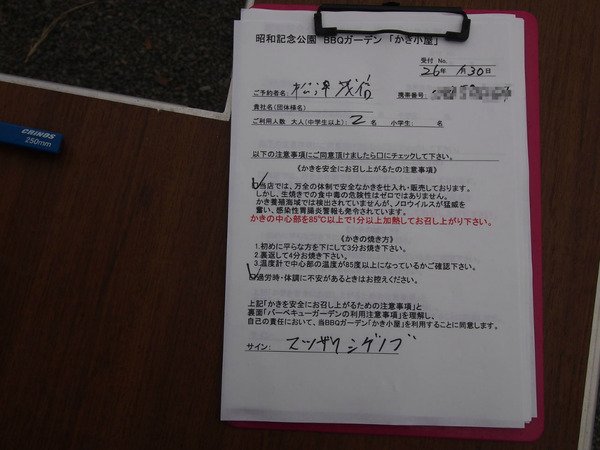 昭和記念公園 BBQガーデン 「かき小屋」
受付 No.
26年 月30日
ご予約者名: 携帯番号:
貴社名(団体様名)
ご利用人数 大人(中学生以上): 2 名 小学生: 名
以下の注意事項にご同意頂けましたら口にチェックして下さい。
《かきを安全にお召し上がるたの注意事項》
当店では、万全の体制で安全なかきを仕入れ・販売しております。
しかし、生焼きでの食中毒の危険性はゼロではありません。
かき養殖海域では検出されていませんが、ノロウイルスが猛威を
奮い、感染性胃腸炎警報も発令されています。
かきの中心部を85℃以上で1分以上加熱してお召し上がり下さい。
《かきの焼き方》
1.初めに平らな方を下にして3分お焼き下さい。
2.裏返して4分お焼き下さい。
3.温度計で中心部の温度が85度以上になっているかご確認下さい。
過労時・体調に不安があるときはお控えください。
上記「かきを安全にお召し上がるための注意事項」と
裏面「バーベキューガーデンの利用注意事項」を理解し、
自己の責任において、当BBQガーデン「かき小屋」を利用することに同意します。
サイン: マツザワ シゲノブ
CRINOS
250mm